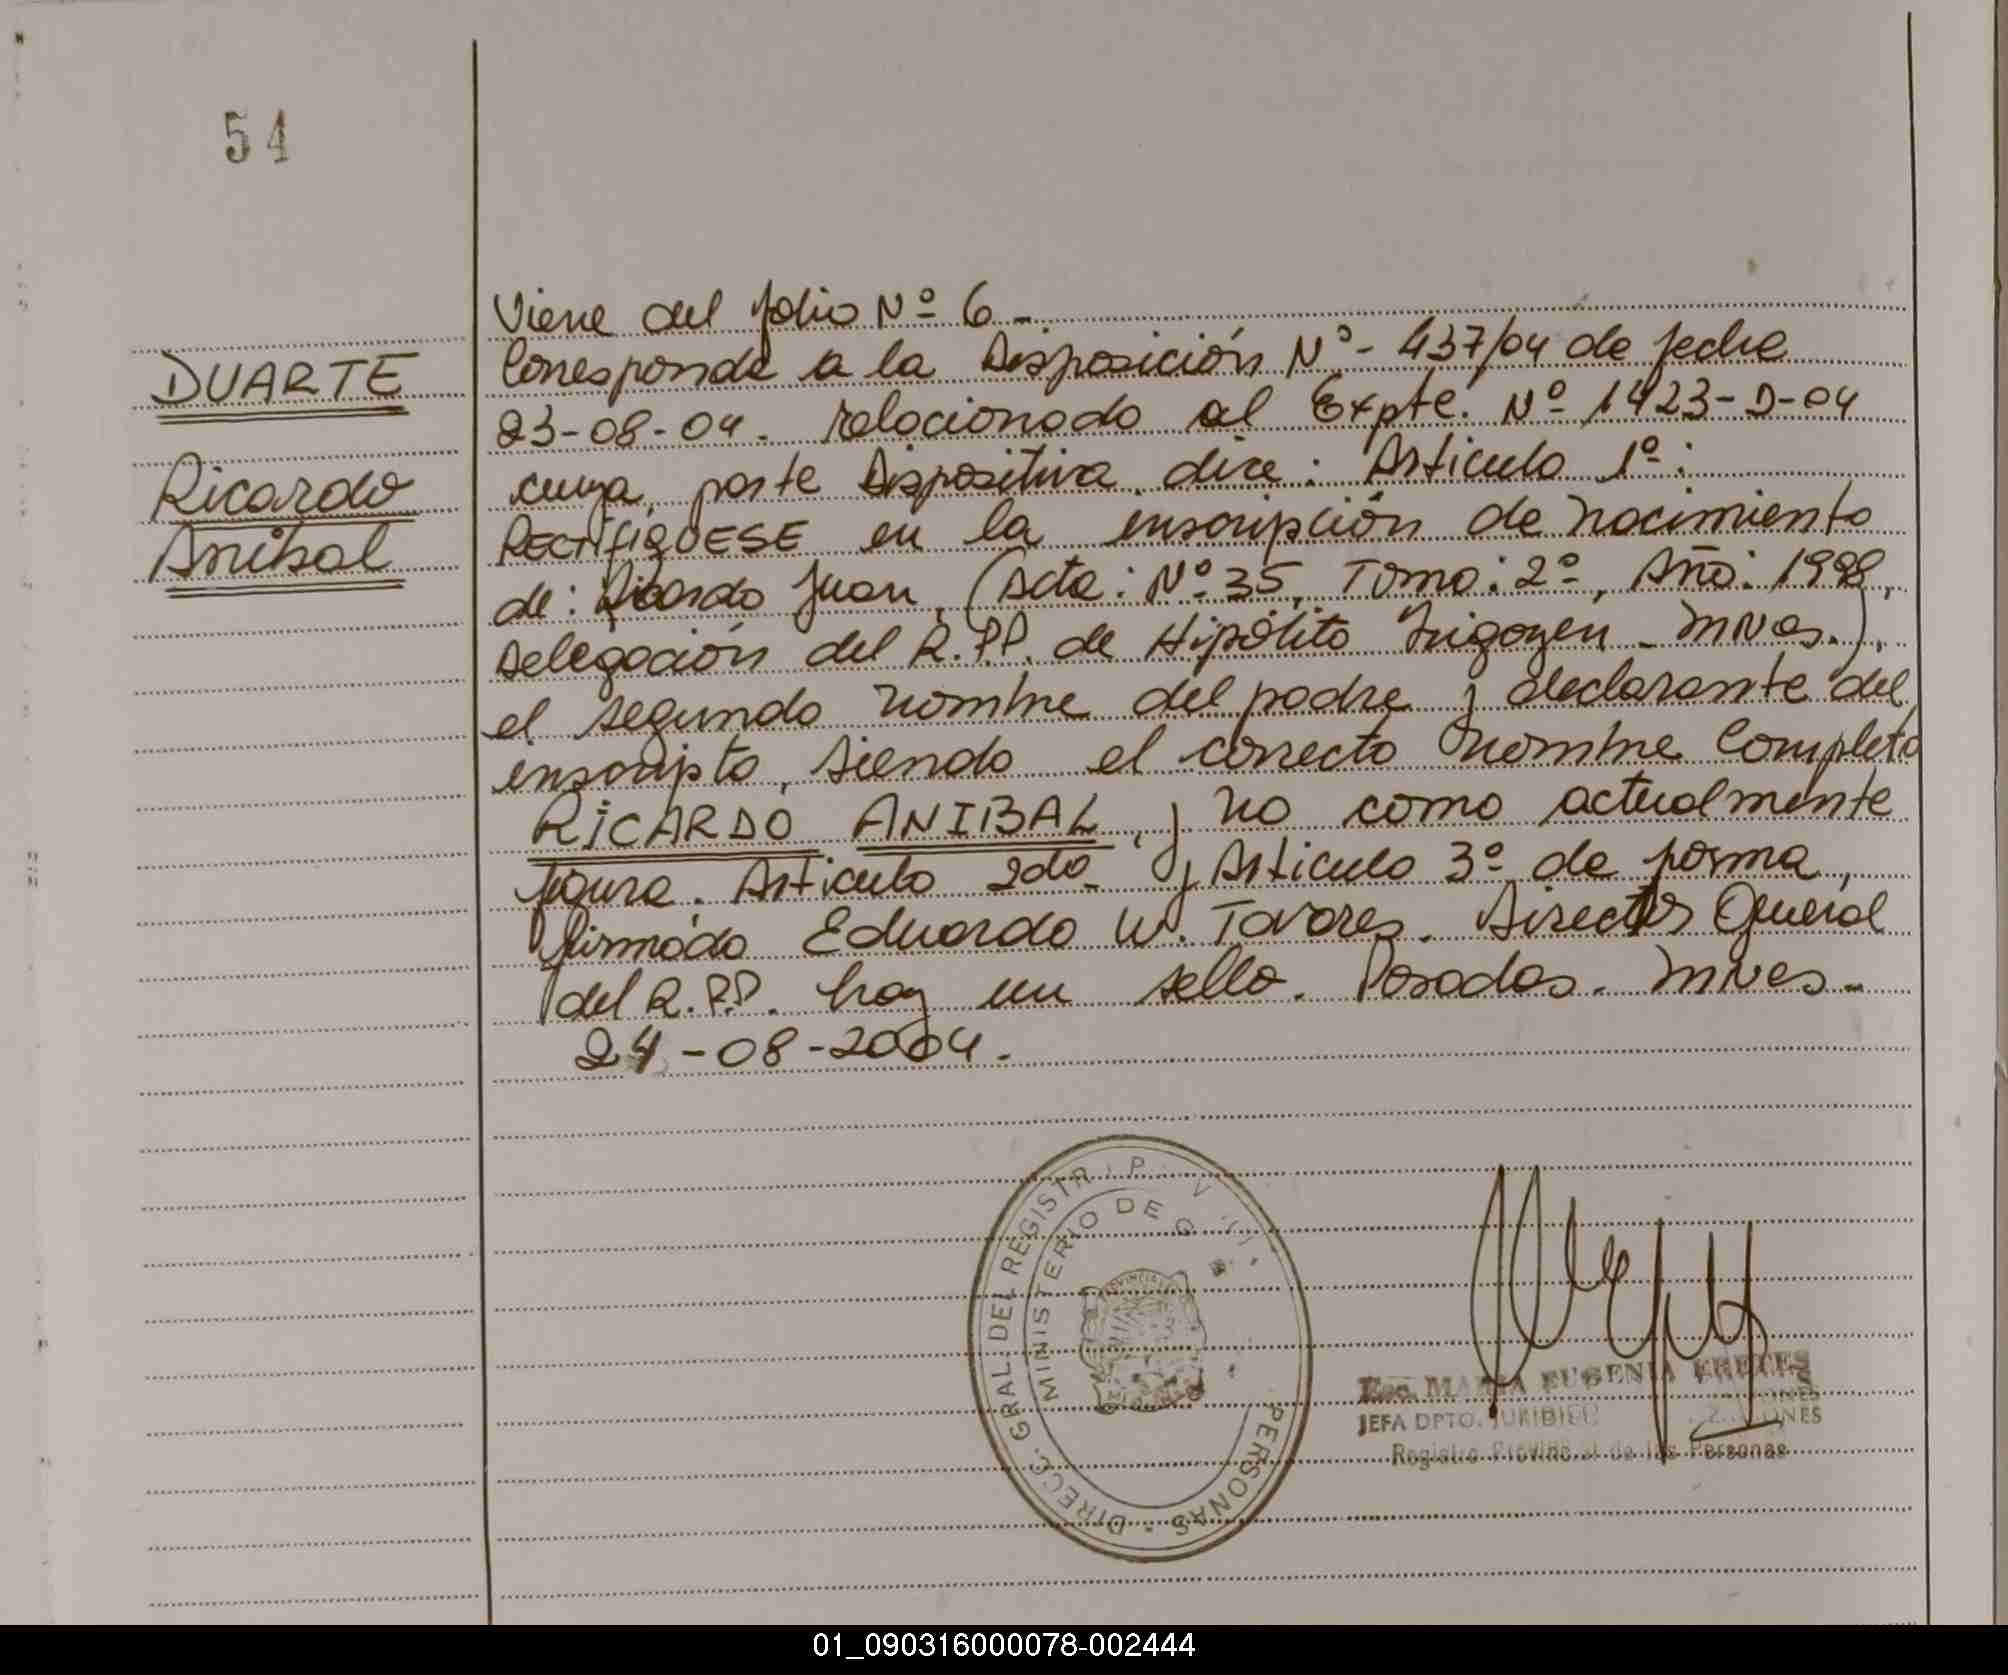 54
DUARTE
Ricardo
Anibal
Viene del folio Nº 6 -
Corresponde a la Disposición Nº - 437/04 de fecha
23-08-04. relacionado al Expte. Nº 1423-D-04
cuya parte Dispositiva dice: Articulo 1º:
RECTIFIQUESE en la inscripción de nacimiento
de: Ricardo Juan, (Acta: Nº 35, Tomo: 2º, Año: 1998,
Delegación del R.P.P. de Hipólito Irigoyen - Mnes.),
el segundo nombre del padre y declarante del
inscripto, siendo el correcto nombre completo
RICARDO ANIBAL, y no como actualmente
figura. Articulo 2do y Articulo 3º de forma,
firmado Eduardo W. Tavares. Director General
del R.P.P. hay un sello. Posadas. Mnes -
24-08-2004.
DIRECC. GRAL. DEL REGISTR P V PERSONAS
MINISTERIO DE G
PROVINCIAL
Esc. MARIA EUGENIA
JEFA DPTO. JURIDICO
Registro Provincial de las Personas
01_090316000078-002444